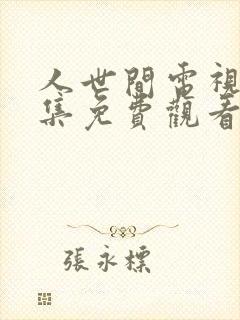 人世間電視
集免費觀看
張永標